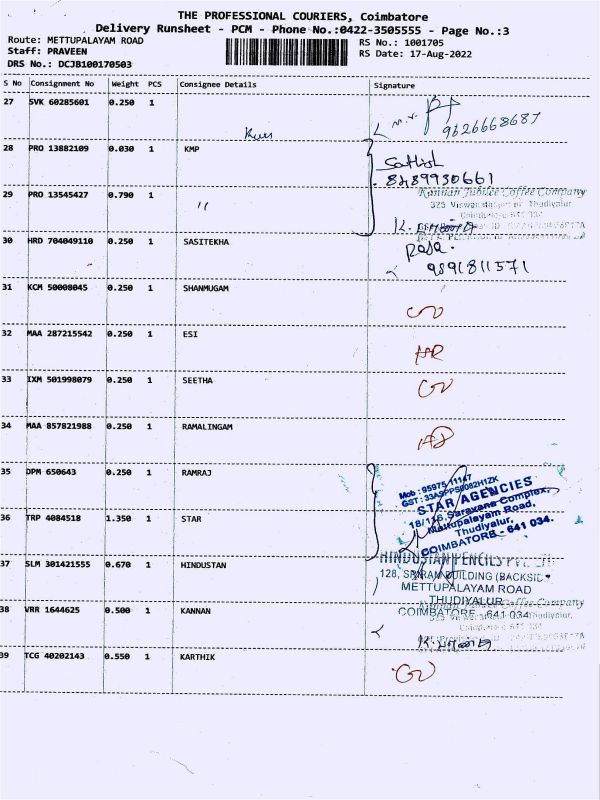 THE PROFESSIONAL COURIERS, Coimbatore
Delivery Runsheet - PCM - Phone No.:0422-3505555 - Page No.:3
Route: METTUPALAYAM ROAD RS No.: 1001705
Staff: PRAVEEN RS Date: 17-Aug-2022
DRS No.: DCJB100170503
S No Consignment No Weight PCS Consignee Details Signature
27 SVK 60285601 0.250 1
9626668687
28 PRO 13882109 0.030 1 KMP
Sathish
8489930661
29 PRO 13545427 0.790 1 "
Kannan Jubilee Coffee Company
Thudiyalur,
30 HRD 704049110 0.250 1 SASITEKHA
Raja.
9591811571
31 KCM 50008045 0.250 1 SHANMUGAM
32 MAA 287215542 0.250 1 ESI
33 IXM 501998079 0.250 1 SEETHA
34 MAA 857821988 0.250 1 RAMALINGAM
35 DPM 650643 0.250 1 RAMRAJ
Mob : 95975 11147
STAR AGENCIES
18/116, Saravana Complex,
Mettupalayam Road,
Thudiyalur,
COIMBATORE - 641 034.
36 TRP 4084518 1.350 1 STAR
37 SLM 301421555 0.670 1 HINDUSTAN
HINDUSTAN PENCILS PVT.
128, SRIRAM BUILDING (BACKSID
METTUPALAYAM ROAD
THUDIYALUR
COIMBATORE - 641 034
38 VRR 1644625 0.500 1 KANNAN
Kannan Jubilee Coffee Company
Thudiyalur,
39 TCG 40202143 0.550 1 KARTHIK